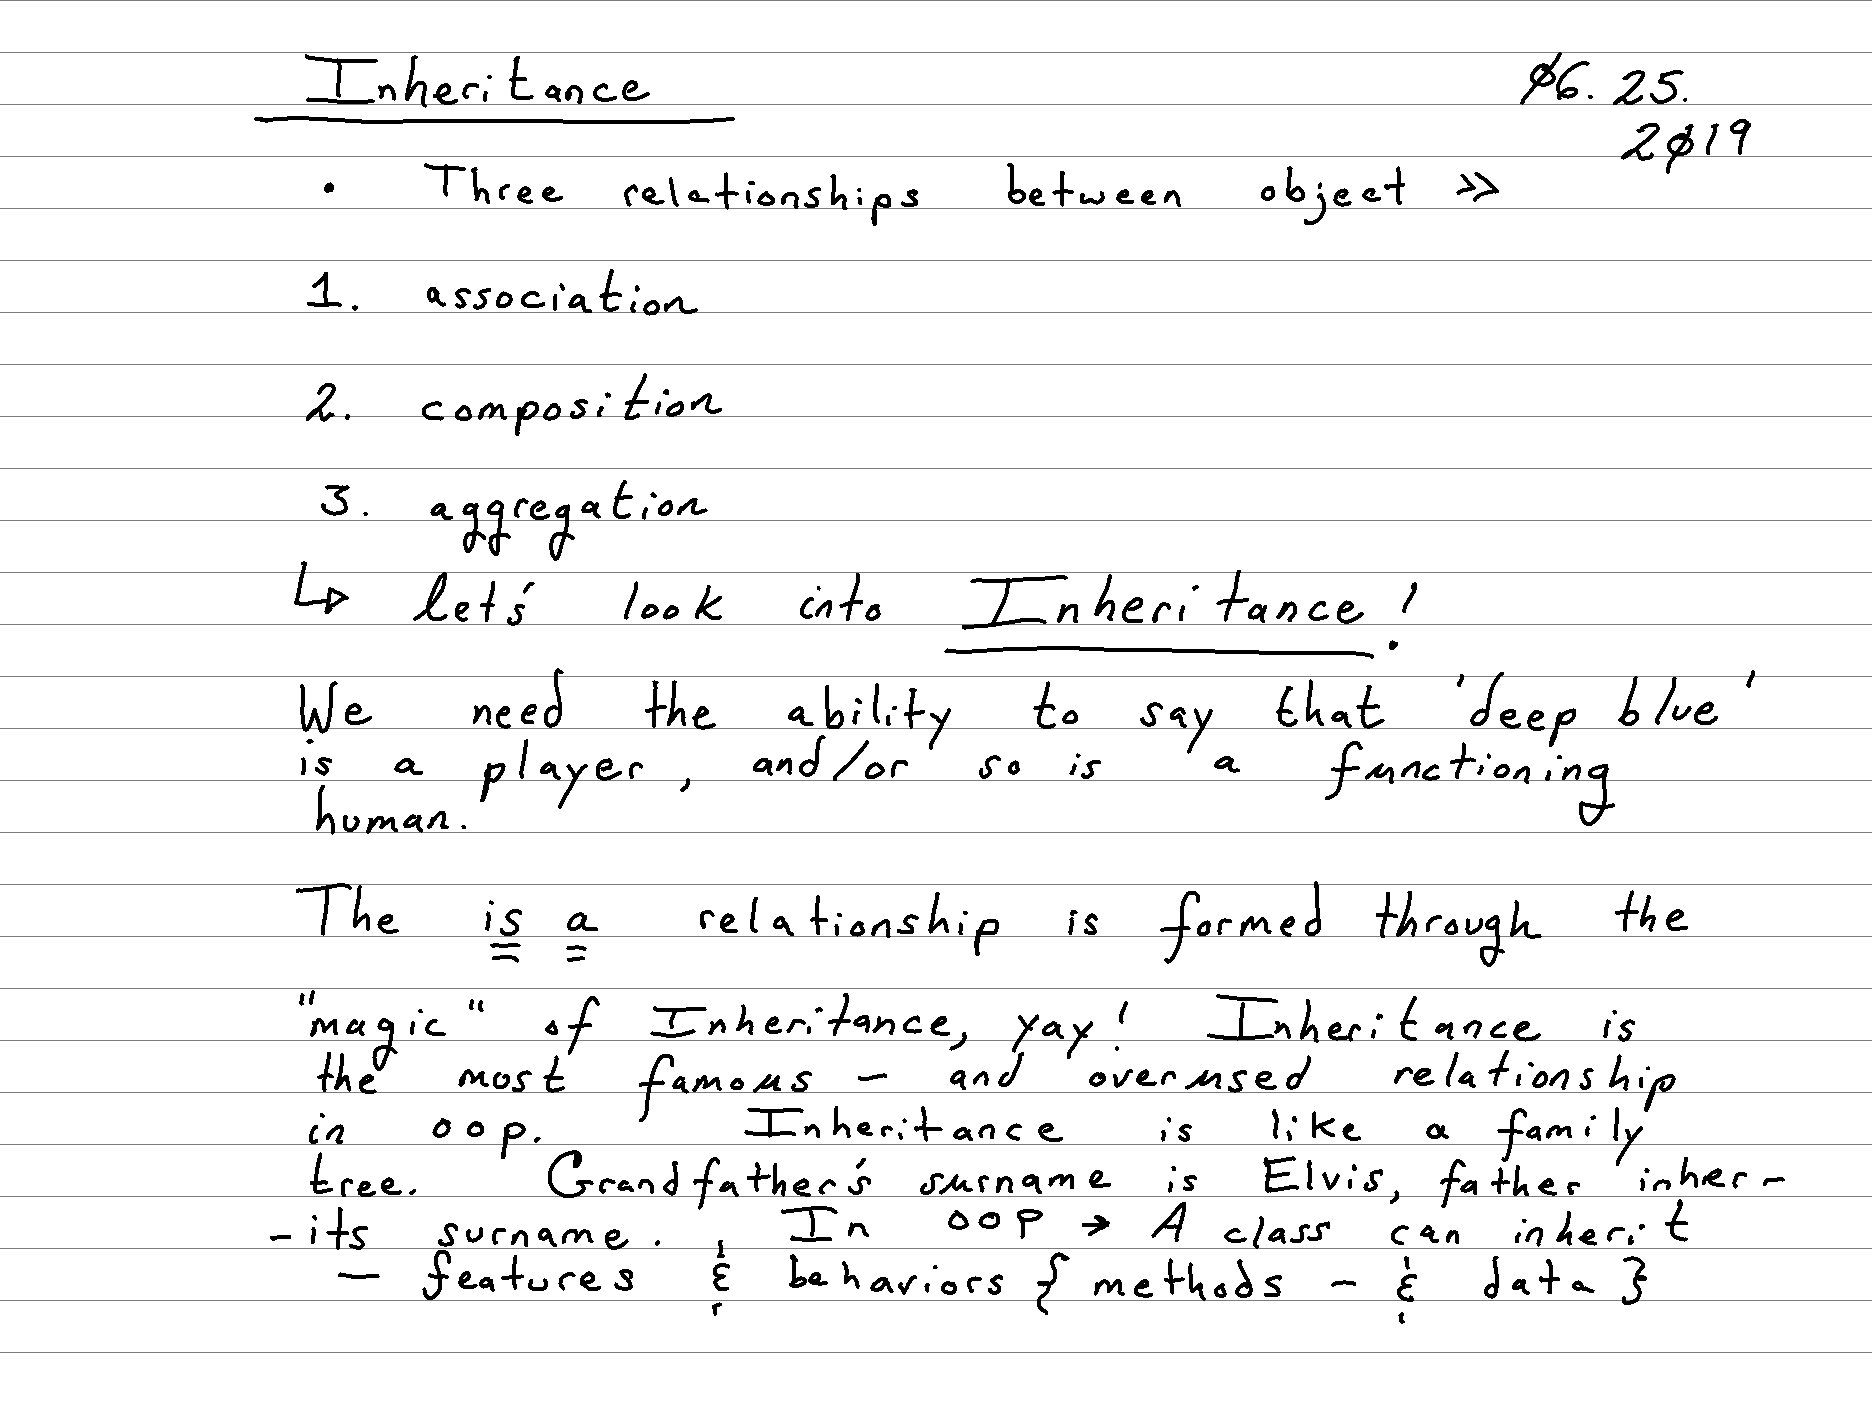 Inheritance
06.25.
2019
• Three relationships between object >>
1. association
2. composition
3. aggregation
↳ let's look into Inheritance!
We need the ability to say that 'deep blue'
is a player, and/or so is a functioning
human.
The is a relationship is formed through the
"magic" of Inheritance, yay! Inheritance is
the most famous - and overused relationship
in oop. Inheritance is like a family
tree. Grandfather's surname is Elvis, father inher-
-its surname. In OOP → A class can inherit
- features & behaviors { methods - & data }